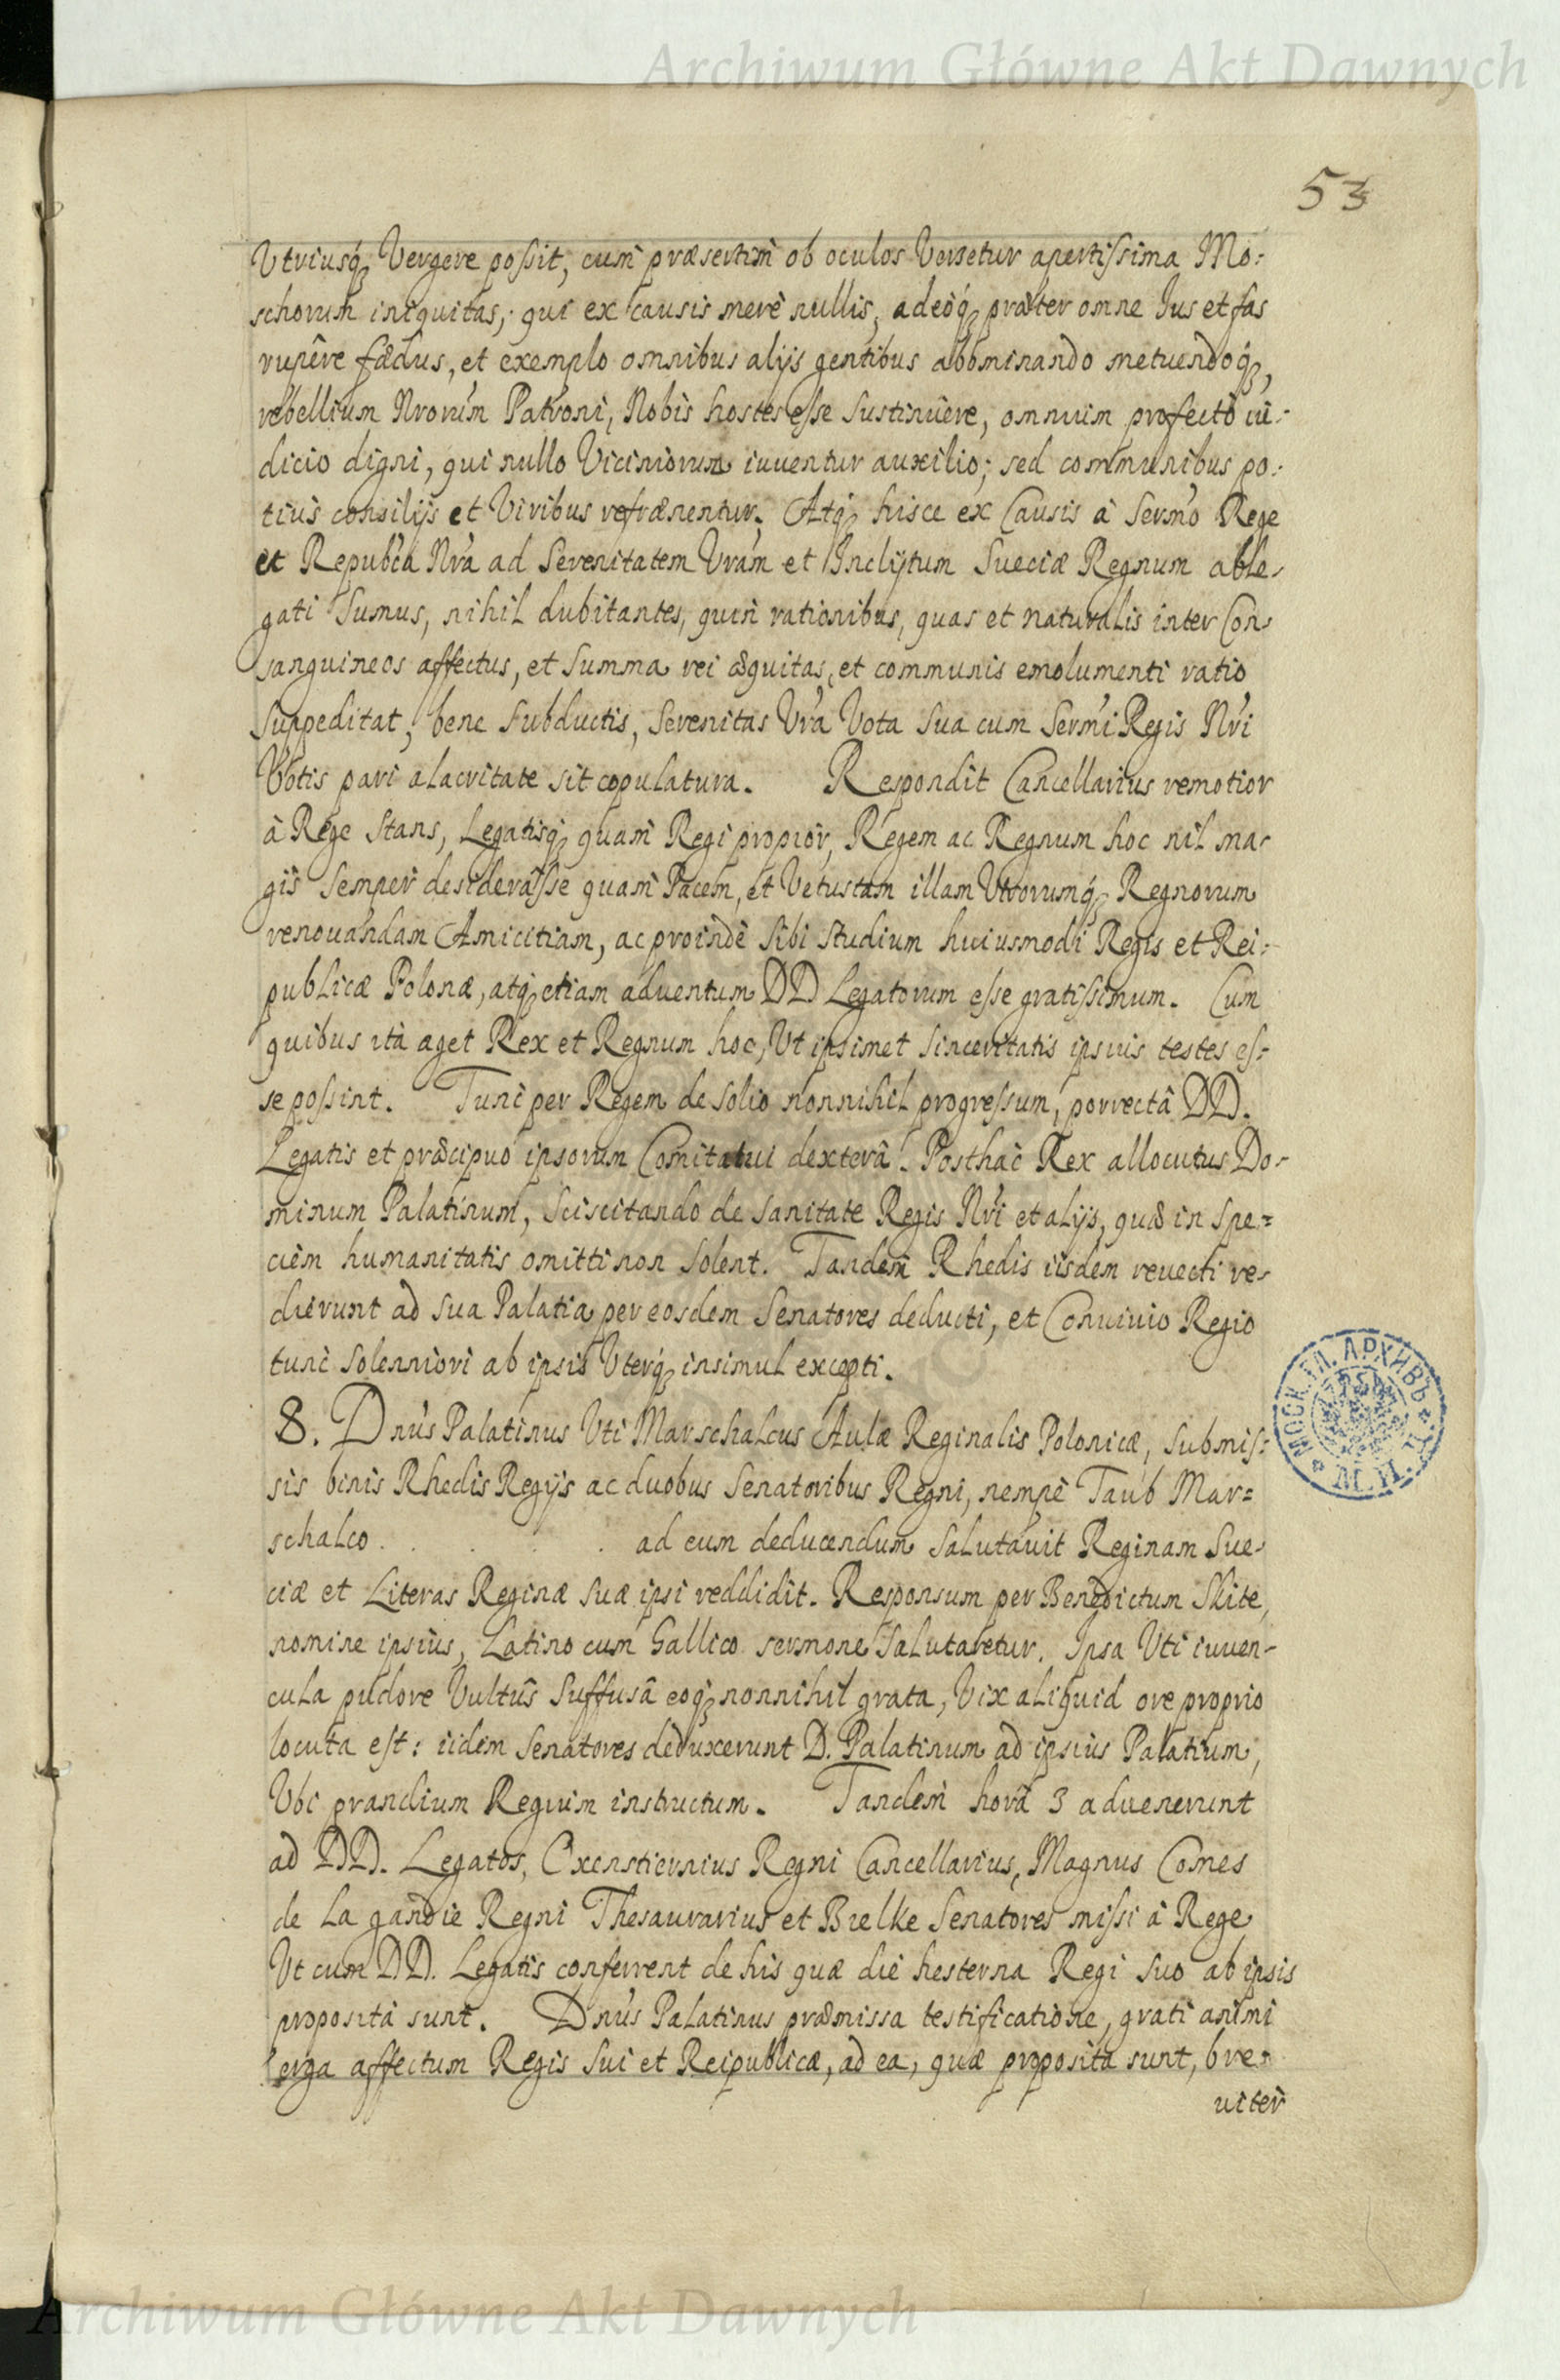 Archiwum Główne Akt Dawnych
53
Utriusq; Vergere possit, cum præsertim ob oculos Versetur apertissima Mo-
schorum iniquitas, qui ex causis merè nullis, adeoq; præter omne Ius et fas
rupêre fædus, et exemplo omnibus alijs gentibus abominando metuendoq;,
rebellium Nrorum Patroni, Nobis hostes esse sustinuere, omnium profectò iu-
dicio digni, qui nullo Vicinorum iuuentur auxilio; sed communibus po-
tius consilijs et Viribus refrænentur. Atq; hisce ex Causis à Sermo Rege
et Republca Nra ad Serenitatem Vram et Inclytum Sueciæ Regnum able-
gati sumus, nihil dubitantes, quin rationibus, quas et naturalis inter Con-
sanguineos affectus, et summa rei æquitas, et communis emolumenti ratio
suppeditat, bene subductis, Serenitas Vra Vota sua cum Sermi Regis Nri
Votis pari alacritate sit copulatura. Respondit Cancellarius remotior
à Rege stans, Legatisq; quam Regi propior, Regem ac Regnum hoc nil ma-
gis semper desiderasse quam Pacem, et Vetustam illam Utrorumq; Regnorum
renouandam Amicitiam, ac proindè sibi studium huiusmodi Regis et Rei-
publicæ Polonæ, atq; etiam aduentum DD Legatorum esse gratissimum. Cum
quibus ità aget Rex et Regnum hoc, Ut ipsimet sinceritatis ipsius testes es-
se possint. Tunc per Regem de solio nonnihil progressum, porrectâ DD.
Legatis et præcipuo ipsorum Comitatui dexterâ. Posthac Rex allocutus Do-
minum Palatinum, sciscitando de sanitate Regis Nri et alijs, quæ in spe-
ciem humanitatis omitti non solent. Tandem Rhedis iisdem reuecti re-
dierunt ad sua Palatia per eosdem Senatores deducti, et Conuiuio Regio
tunc solenniori ab ipsis Uterq; insimul excepti.
8. Dnus Palatinus Uti Marschalcus Aulæ Reginalis Polonicæ, submis-
sis binis Rhedis Regijs ac duobus Senatoribus Regni, nempè Taub Mar-
schalco . . . . . ad eum deducendum salutauit Reginam Sue-
ciæ et Literas Reginæ suæ ipsi reddidit. Responsum per Benedictum Skite,
nomine ipsius, Latino cum Gallico sermone salutaretur. Ipsa Uti iuuen-
cula pudore Vultûs suffusâ eoq; nonnihil grata, Vix aliquid ore proprio
locuta est: iidem Senatores deduxerunt D. Palatinum ad ipsius Palatium,
Ubi prandium Regium instructum. Tandem horâ 3 aduenerunt
ad DD. Legatos, Oxenstiernius Regni Cancellarius, Magnus Comes
de La gardie Regni Thesaurarius et Bielke Senatores missi à Rege
Ut cum DD. Legatis conferrent de his quæ die hesterna Regi suo ab ipsis
proposita sunt. Dnus Palatinus præmissa testificatione, grati animi
erga affectum Regis sui et Reipublicæ, ad ea, quæ proposita sunt, bre-
uiter
МОСК. ГЛ. АРХИВЪ
М. И. Д.
Archiwum Główne Akt Dawnych